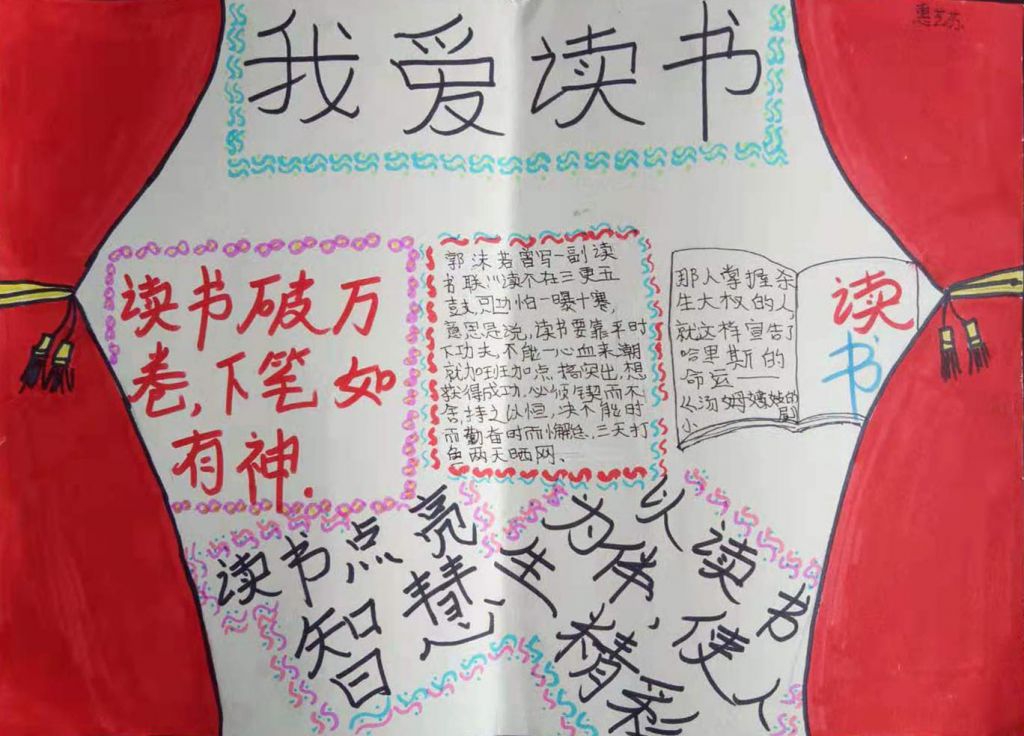 我爱读书
读书破万
卷,下笔如
有神.
郭沫若曾写一副读
书联"读不在三更五
鼓,功怕一曝十寒,
意思是说,读书要靠平时
下功夫,不能一心血来潮
就加班加点,搞突出,想
获得成功,必须锲而不
舍,持之以恒,决不能时
而勤奋时而懈怠,三天打
鱼两天晒网、
那人掌握杀
生大权的人,
就这样宣告了
哈里斯的
命运——
汤姆 的
小屋
读
书
读书点亮
智慧
以读书
为伴,使人
生精彩